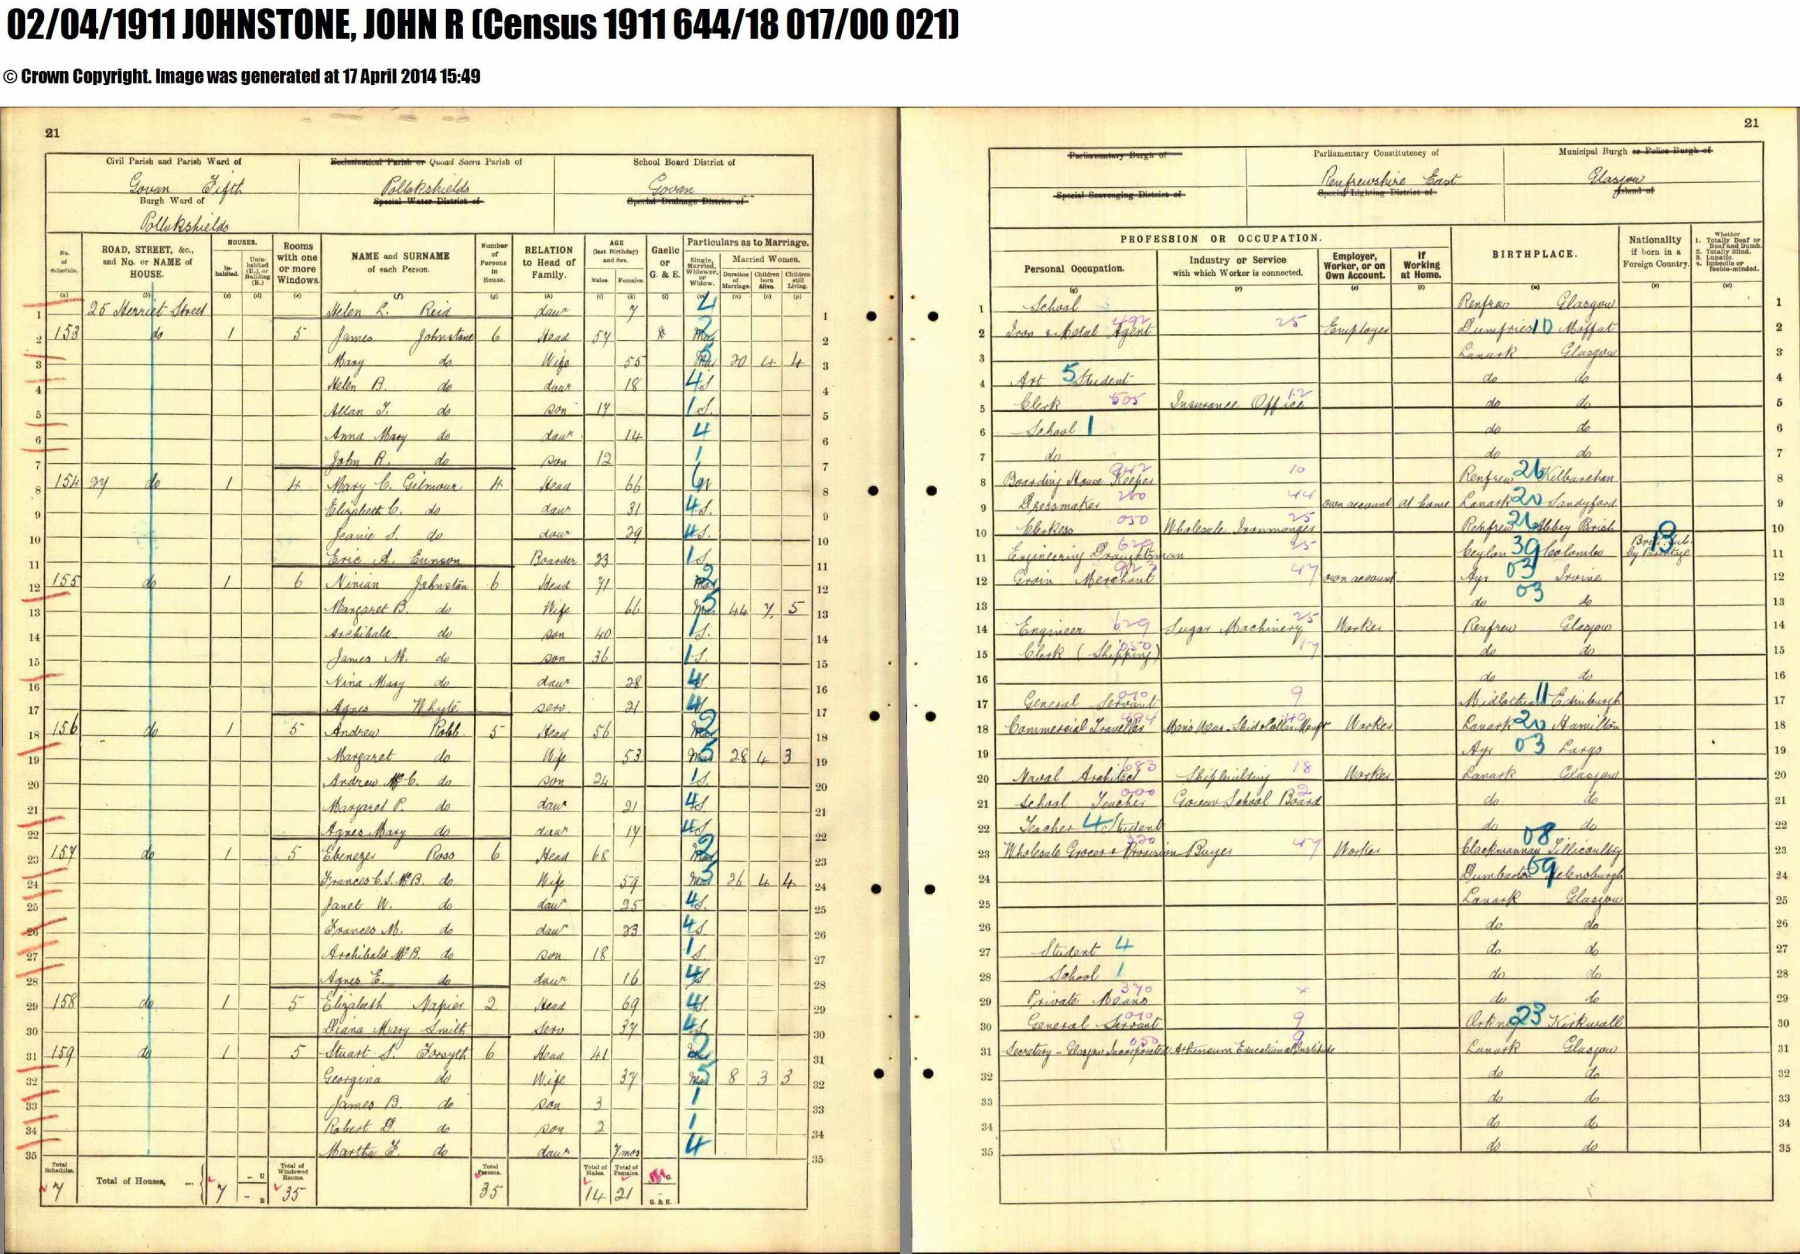 02/04/1911 JOHNSTONE, JOHN R (Census 1911 644/18 017/00 021)
© Crown Copyright. Image was generated at 17 April 2014 15:49
21
Civil Parish and Parish Ward of Ecclesiastical Parish or Quoad Sacra Parish of School Board District of
Govan Fifth Pollokshields Govan
Burgh Ward of Special Water District of Special Drainage District of
Pollokshields
No. of Schedule. ROAD, STREET, &c., and No. or NAME of HOUSE. HOUSES. Inhabited. Uninhabited (U.), or Building (B.) Rooms with one or more Windows. NAME and SURNAME of each Person. Number of Persons in House. RELATION to Head of Family. AGE (last Birthday) and Sex. Males. Females. Gaelic or G. & E. Particulars as to Marriage. Single, Married, Widower, or Widow. Married Women. Duration of Marriage. Children born Alive. Children still Living.
1 25 Herriet Street Helen L. Reid daur 7 4 1
2 153 do 1 5 James Johnstone 6 Head 57 Mar 2 2
3 Mary do Wife 55 Mar 5 20 4 4 3
4 Helen B. do daur 18 4 S. 4
5 Allan J. do son 17 1 S. 5
6 Anna Mary do daur 14 4 6
7 John R. do son 12 1 7
8 154 27 do 1 4 Mary C. Gilmour 4 Head 66 6 W 8
9 Elizabeth C. do daur 31 4 S. 9
10 Jeanie S. do daur 29 4 S. 10
11 Eric A. Eunson Boarder 23 1 S. 11
12 155 do 1 6 Ninian Johnston 6 Head 71 Mar 2 12
13 Margaret B. do Wife 66 Mar 5 44 7 5 13
14 Archibald do son 40 1 S. 14
15 James M. do son 36 1 S. 15
16 Nina Mary do daur 28 4 S. 16
17 Agnes Whyte serv. 21 4 S. 17
18 156 do 1 5 Andrew Robb 5 Head 56 Mar 2 18
19 Margaret do Wife 53 Mar 5 28 4 3 19
20 Andrew McC. do son 24 1 S. 20
21 Margaret P. do daur 21 4 S. 21
22 Agnes Mary do daur 17 4 S. 22
23 157 do 1 5 Ebenezer Ross 6 Head 68 Mar 2 23
24 Frances C.S. McB. do Wife 59 Mar 5 26 4 4 24
25 Janet W. do daur 25 4 S. 25
26 Frances M. do daur 23 4 S. 26
27 Archibald McB. do son 18 1 S. 27
28 Agnes E. do daur 16 4 S 28
29 158 do 1 5 Elizabeth Napier 2 Head 69 4 S. 29
30 Diana Mary Smith Serv 37 4 S 30
31 159 do 1 5 Stuart S. Forsyth 6 Head 41 Mar 2 31
32 Georgina do Wife 37 Mar 5 8 3 3 32
33 James B. do son 3 1 33
34 Robert D. do son 2 1 34
35 Martha F. do daur 7 mos 4 35
Total Schedules. 7 Total of Houses, 7 – U – B Total of Windowed Rooms. 35 Total Persons. 35 Total of Males. 14 Total of Females. 21 G. & E.
21
Parliamentary Burgh of Parliamentary Constituency of Municipal Burgh or Police Burgh of
Renfrewshire East Glasgow
Special Scavenging District of Special Lighting District of Island of
PROFESSION OR OCCUPATION. BIRTHPLACE. Nationality if born in a Foreign Country. Whether 1. Totally Deaf or Deaf and Dumb. 2. Totally Blind. 3. Lunatic. 4. Imbecile or feeble-minded.
Personal Occupation. Industry or Service with which Worker is connected. Employer, Worker, or on Own Account. If Working at Home.
1 School Renfrew Glasgow 1
2 Iron & Metal Agent 25 Employer Dumfries 10 Moffat 2
3 Lanark Glasgow 3
4 Art 5 Student do do 4
5 Clerk 505 Insurance Office 12 do do 5
6 School 1 do do 6
7 do do do 7
8 Boarding House Keeper 10 Renfrew 26 Kilbarchan 8
9 Dressmaker 44 own account at home Lanark 20 Sandyford 9
10 Clerkess 050 Wholesale Ironmonger 25 Renfrew Abbey Parish 10
11 Engineering Draughtsman 25 Ceylon 39 Colombo by Parentage 11
12 Grain Merchant 47 own account Ayr 03 Irvine 12
13 do 03 do 13
14 Engineer 629 Sugar Machinery 25 Worker Renfrew Glasgow 14
15 Clerk (Shipping) 17 do do 15
16 do do 16
17 General Servant 9 Midlothian 11 Edinburgh 17
18 Commercial Traveller Worker Lanark 20 Hamilton 18
19 Ayr 03 Largs 19
20 Naval Architect 683 Shipbuilding 18 Worker Lanark Glasgow 20
21 School Teacher Govan School Board 2 do do 21
22 Teacher 4 Student do do 22
23 Wholesale Grocer & Provision Buyer 47 Worker Clackmannan 08 Tillicoultry 23
24 Dumbarton 09 Helensburgh 24
25 Lanark Glasgow 25
26 do do 26
27 Student 4 do do 27
28 School 1 do do 28
29 Private Means 390 x do do 29
30 General Servant 9 Orkney 23 Kirkwall 30
31 Secretary – Glasgow Incorporated Athenaeum Educational Institute 9 Lanark Glasgow 31
32 do do 32
33 do do 33
34 do do 34
35 do do 35